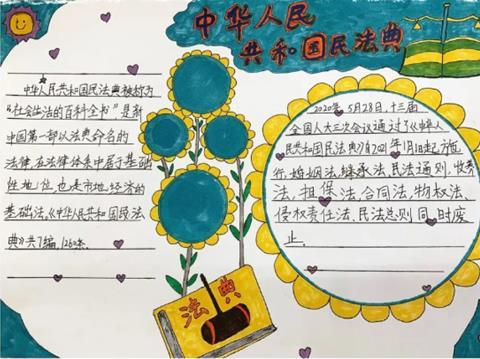 中华人民
共和国民法典
中华人民共和国民法典被称为
“社会生活的百科全书”是新
中国第一部以法典命名的
法律,在法律体系中居于基础
性地位,也是市场经济的
基础法,《中华人民共和国民法
典》共7编,1260条.
2020年5月28日,十三届
全国人大三次会议通过了《中华人
民共和国民法典》自2021年1月1日起施
行,婚姻法,继承法,民法通则,收养
法,担保法,合同法,物权法、
侵权责任法,民法总则同时废
止.
法典